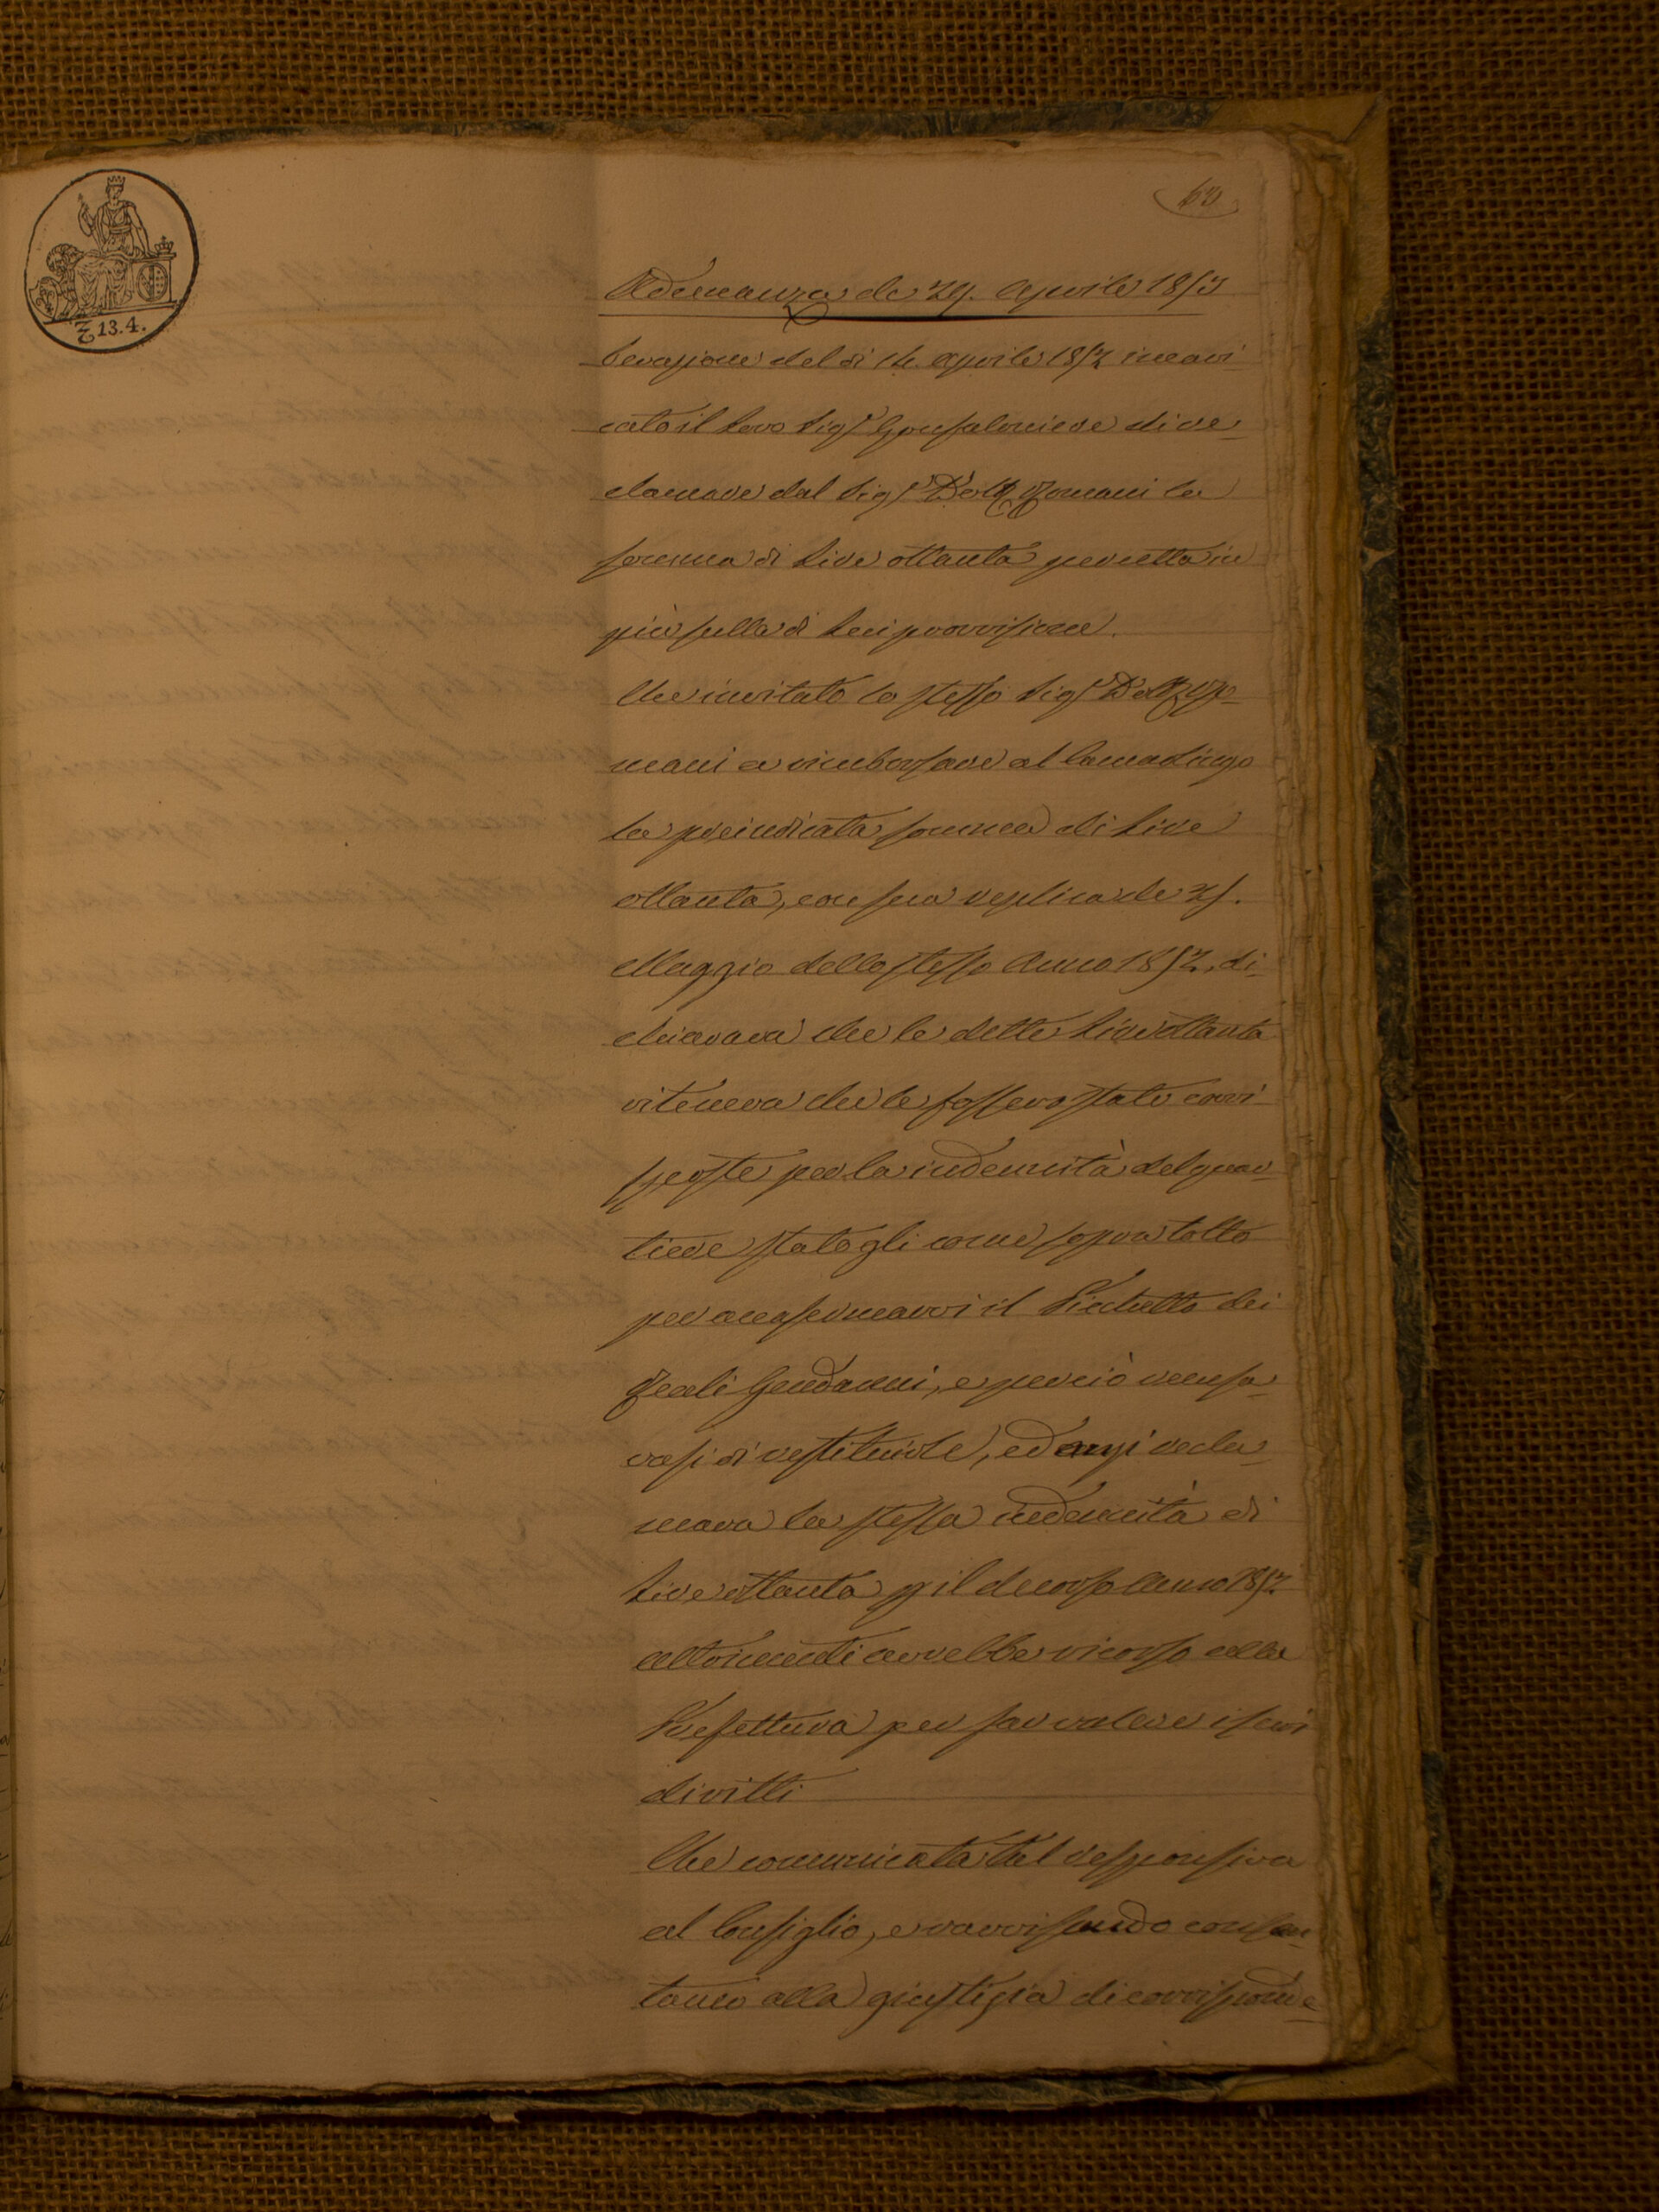 60
Adunanza de 29. Aprile 1853
berazione del dì 14. Aprile 1852 incari
cato il loro Sig.r Gonfaloniere di re=
clamare dal Sig.r Dott. Romani la
somma di Lire ottanta percetta in
più sulla di lui provvisione.
Che invitato lo stesso Sig.r Dott. Ro=
mani a rimborsare al Camarlingo
la preindicata somma di Lire
ottanta, con sua replica de 25.
Maggio dello stesso Anno 1852, di=
chiarava che le dette Lire ottanta
riteneva che le fossero state corri=
sposte per la indennità del quar=
tiere statogli come sopra tolto
per accasermarvi il Picchetto dei
Reali Gendarmi, e perciò recusa=
vasi di restituirle, ed anzi recla=
mava la stessa indennità di
Lire ottanta p il decorso Anno 1852
altrimenti avrebbe ricorso alla
Prefettura per far valere i suoi
diritti
Che comunicata tal responsiva
al Consiglio, e ravvisando consen=
taneo alla giustizia di corrisponde=
₤ 13.4.